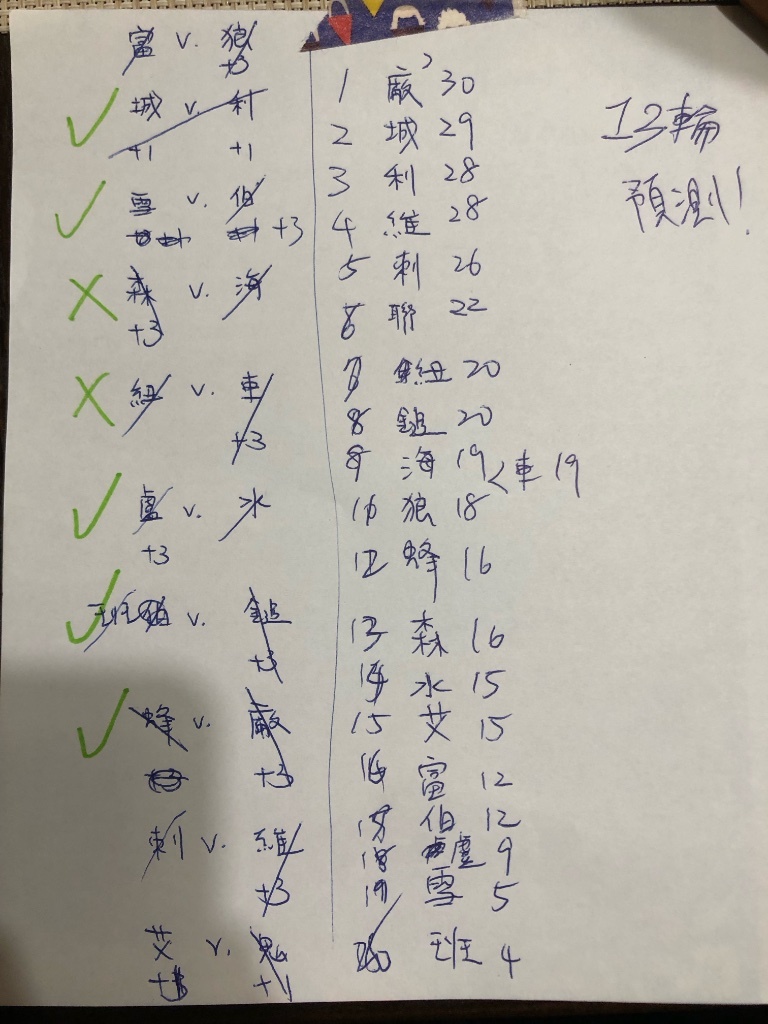 富 v. 狼
+3
城 v. 利
+1 +1
雪 v. 伯
+3
森 v. 海
+3
紐 v. 車
+3
盧 v. 水
+3
班 v. 鎚
+3
蜂 v. 廠
+3
刺 v. 維
+3
艾 v. 鬼
+1
1 廠 30
2 城 29
3 利 28
4 維 28
5 刺 26
6 聯 22
7 紐 20
8 鎚 20
9 海 19 < 車 19
10 狼 18
12 蜂 16
13 森 16
14 水 15
15 艾 15
16 富 12
17 伯 12
18 盧 9
19 雪 5
20 班 4
13輪
預測!